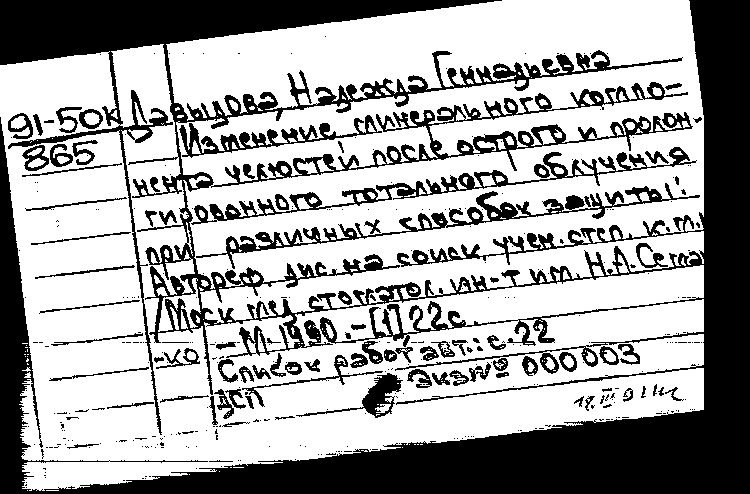 91-50к
865
Давыдова, Надежда Геннадьевна
Изменение минерального компо-
нента челюстей после острого и пролон-
гированного тотального облучения
при различных способах защиты:
Автореф. дис. на соиск. учен. степ. к.м.н
/Моск. мед. стоматол. ин-т им. Н.А.Сема
- М. 1990. - [1] 22 с.
-ко
Список работ авт.: с. 22
ДСП Экз № 000003